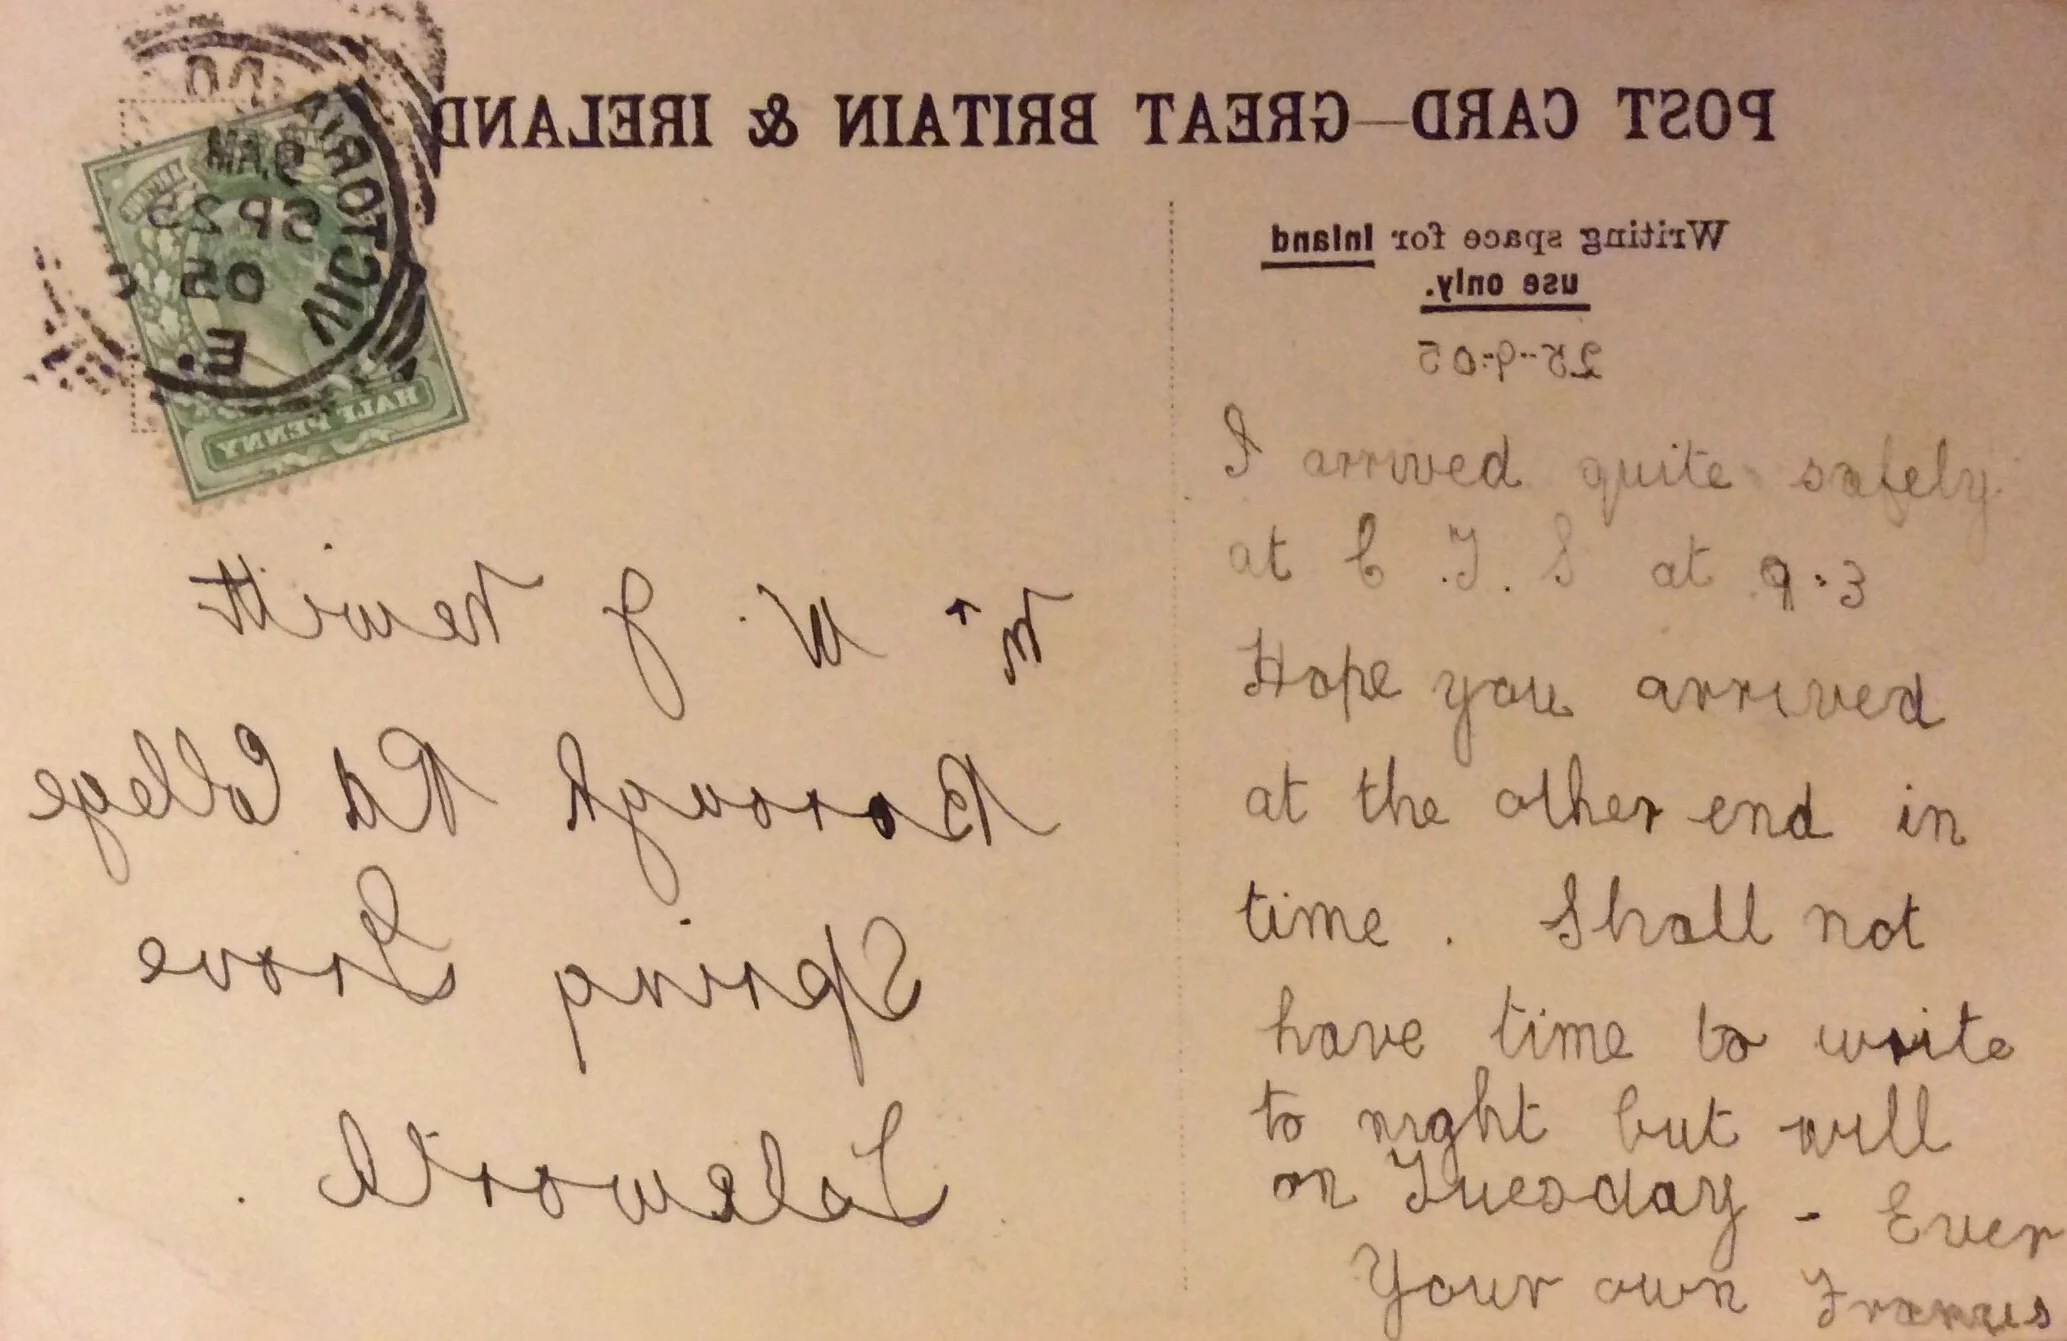 POST CARD—GREAT BRITAIN & IRELAND
Writing space for Inland
use only.
25-9-05
I arrived quite safely
at C.T.S at 9.3
Hope you arrived
at the other end in
time. Shall not
have time to write
to night but will
on Tuesday - Ever
Your own Francis
VICTORIA DO
9 AM
SP 25
05
E.
HALF PENNY
Mr W. J Newitt
Borough Rd College
Spring Grove
Isleworth.